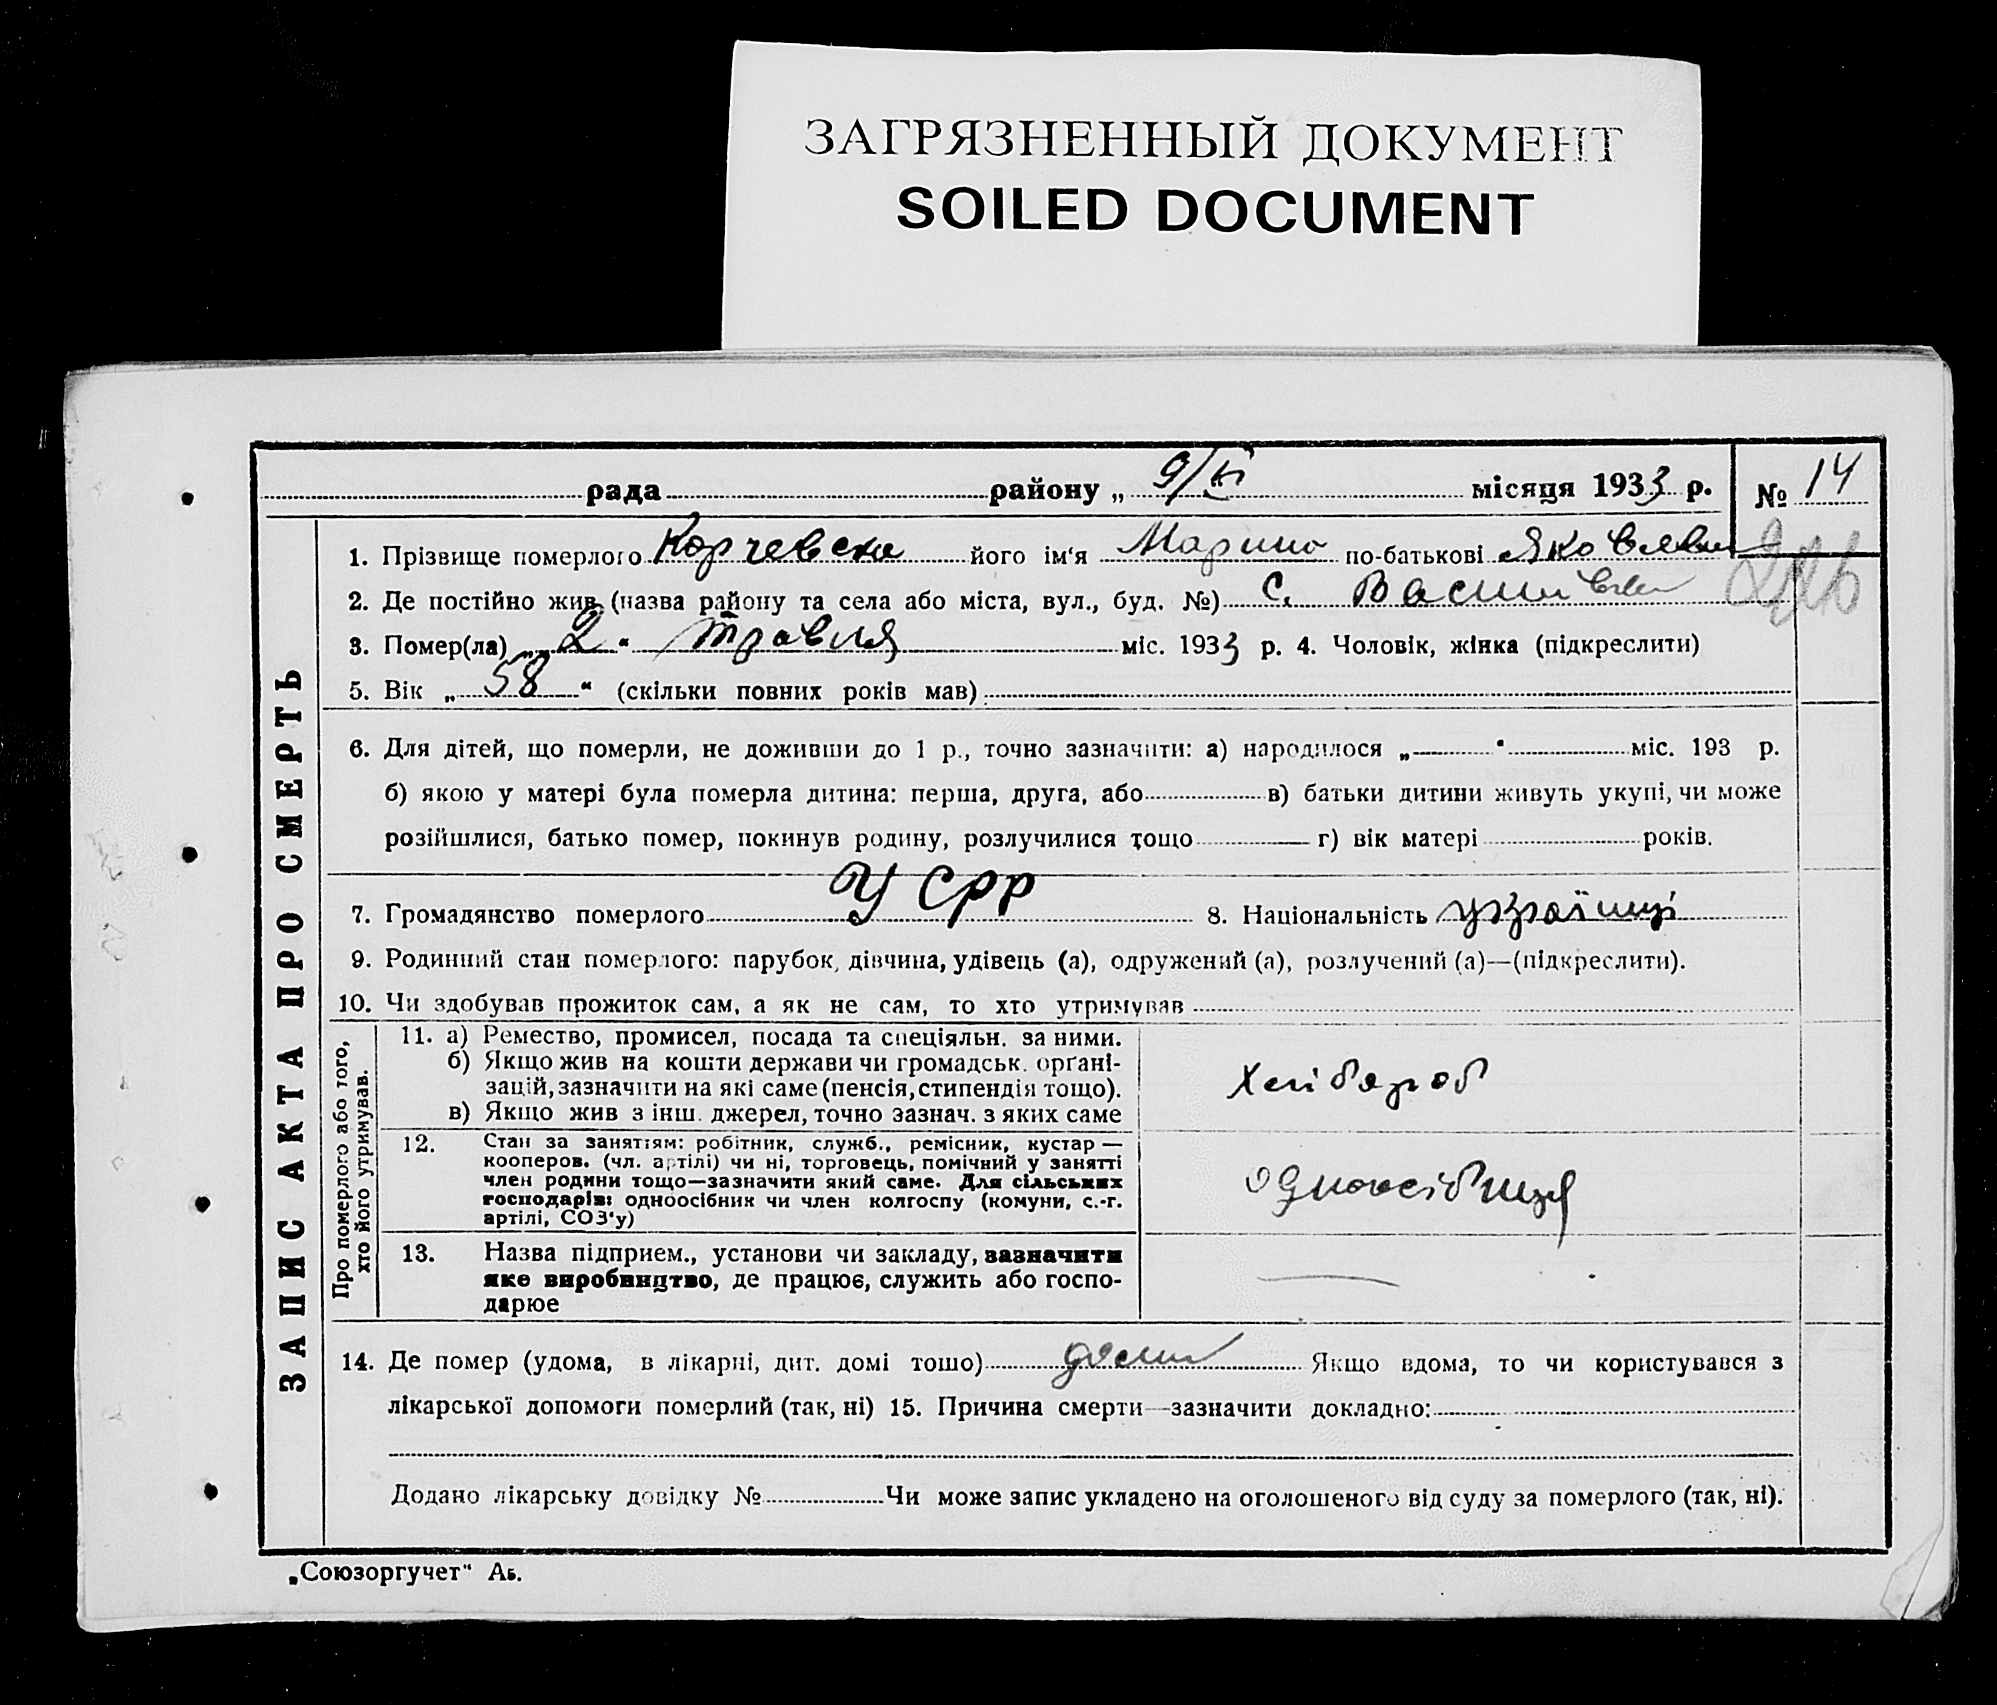 ЗАГРЯЗНЕННЫЙ ДОКУМЕНТ
SOILED DOCUMENT
рада района „ 9/VI місяця 1933 р. № 14
ЗАПИС АКТА ПРО СМЕРТЬ
1. Прізвище померлого Корчевска його ім'я Марина по-батькові Яковлевна
2. Де постійно жив (назва району та села або міста, вул., буд. №) с.
3. Помер(ла) „ 2 " травля міс. 1933 р. 4. Чоловік, жінка (підкреслити)
5. Вік „ 58 " (скільки повних років мав)
6. Для дітей, що померли, не доживши до 1 р., точно зазначити: а) народилося „ — " міс. 193 р.
б) якою у матері була померла дитина: перша, друга, або в) батьки дитини живуть укупі, чи може
розійшлися, батько помер, покинув родину, розлучилися тощо г) вік матері років.
7. Громадянство померлого УСРР 8. Національність
9. Родинний стан померлого: парубок, дівчина, удівець (а), одружений (а), розлучений (а)—(підкреслити).
10. Чи здобував прожиток сам, а як не сам, то хто утримував
Про померлого або того,
хто його утримував.
11. а) Ремество, промисел, посада та спеціяльн. за ними.
б) Якщо жив на кошти держави чи громадськ. орґані-
зацій, зазначити на які саме (пенсія, стипендія тощо).
в) Якщо жив з інш. джерел, точно зазнач. з яких саме
Хлібороб
12. Стан за заняттям: робітник, служб., ремісник, кустар —
кооперов. (чл. артілі) чи ні, торговець, помічний у занятті
член родини тощо—зазначити який саме. Для сільських
господарів: одноосібник чи член колгоспу (комуни, с.-г.
артілі, СОЗ'у)
одноосібниця
13. Назва підприєм., установи чи закладу, зазначити
яке виробництво, де працює, служить або госпо-
дарює
14. Де помер (удома, в лікарні, дит. домі тощо) дома Якщо вдома, то чи користувався з
лікарської допомоги померлий (так, ні) 15. Причина смерти—зазначити докладно:
Додано лікарську довідку № Чи може запис укладено на оголошеного від суду за померлого (так, ні).
„Союзоргучет" Аь.